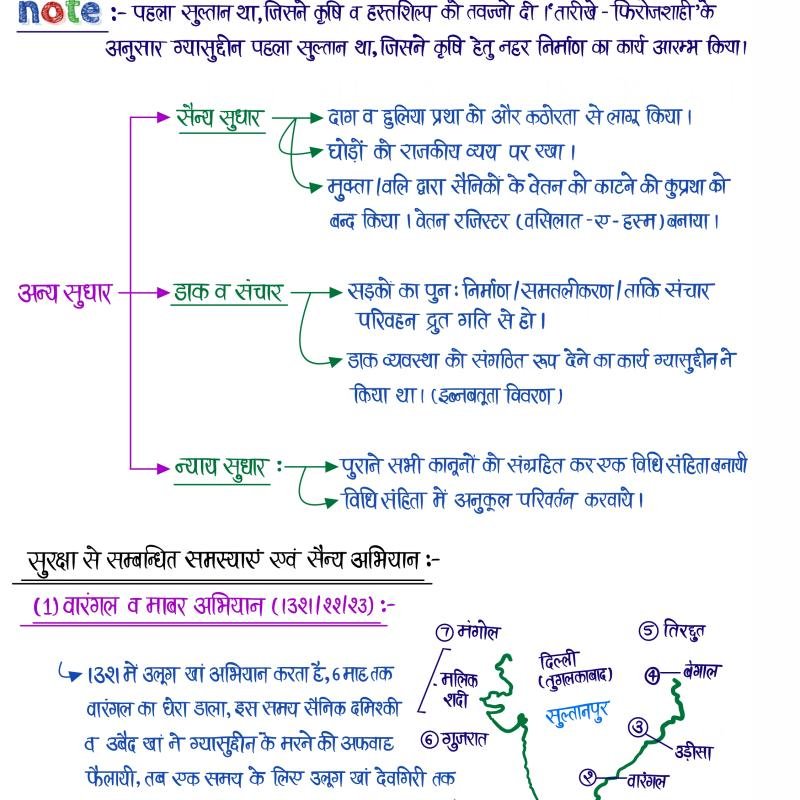 note :- पहला सुल्तान था, जिसने कृषि व हस्तशिल्प को तवज्जो दी। 'तारीखे - फिरोजशाही' के
अनुसार ग्यासुद्दीन पहला सुल्तान था, जिसने कृषि हेतु नहर निर्माण का कार्य आरम्भ किया।
सैन्य सुधार → दाग व हुलिया प्रथा को और कठोरता से लागू किया।
→ घोड़ों को राजकीय व्यय पर रखा।
→ मुक्ता/वलि द्वारा सैनिकों के वेतन को काटने की कुप्रथा को
बन्द किया। वेतन रजिस्टर (वसिलात -ए- हस्म) बनाया।
अन्य सुधार → डाक व संचार → सड़कों का पुन: निर्माण/समतलीकरण/ताकि संचार
परिवहन द्रुत गति से हो।
→ डाक व्यवस्था को संगठित रूप देने का कार्य ग्यासुद्दीन ने
किया था। (इब्नबतूता विवरण)
न्याय सुधार : → पुराने सभी कानूनों को संग्रहित कर एक विधि संहिता बनायी
→ विधि संहिता में अनुकूल परिवर्तन करवाये।
सुरक्षा से सम्बन्धित समस्याएं एवं सैन्य अभियान :-
(1) वारंगल व माबर अभियान (1321/22/23) :-
1321 में उलूग खां अभियान करता है, 6 माह तक
वारंगल का घेरा डाला, इस समय सैनिक दमिश्की
व उबैद खां ने ग्यासुद्दीन के मरने की अफवाह
फैलायी, तब एक समय के लिए उलूग खां देवगिरी तक
⑦ मंगोल
मलिक
शदी
⑥ गुजरात
दिल्ली
(तुगलकाबाद)
सुल्तानपुर
⑤ तिरहुत
④ बंगाल
③ उड़ीसा
② वारंगल